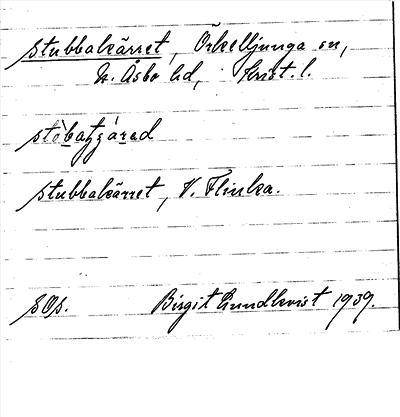 stubbakärret, Örkelljunga sn,
N. Åsbo hd, Krist. l.
stubbakärret, V. Flinka.
SOs.
Birgit Lundkvist 1939.